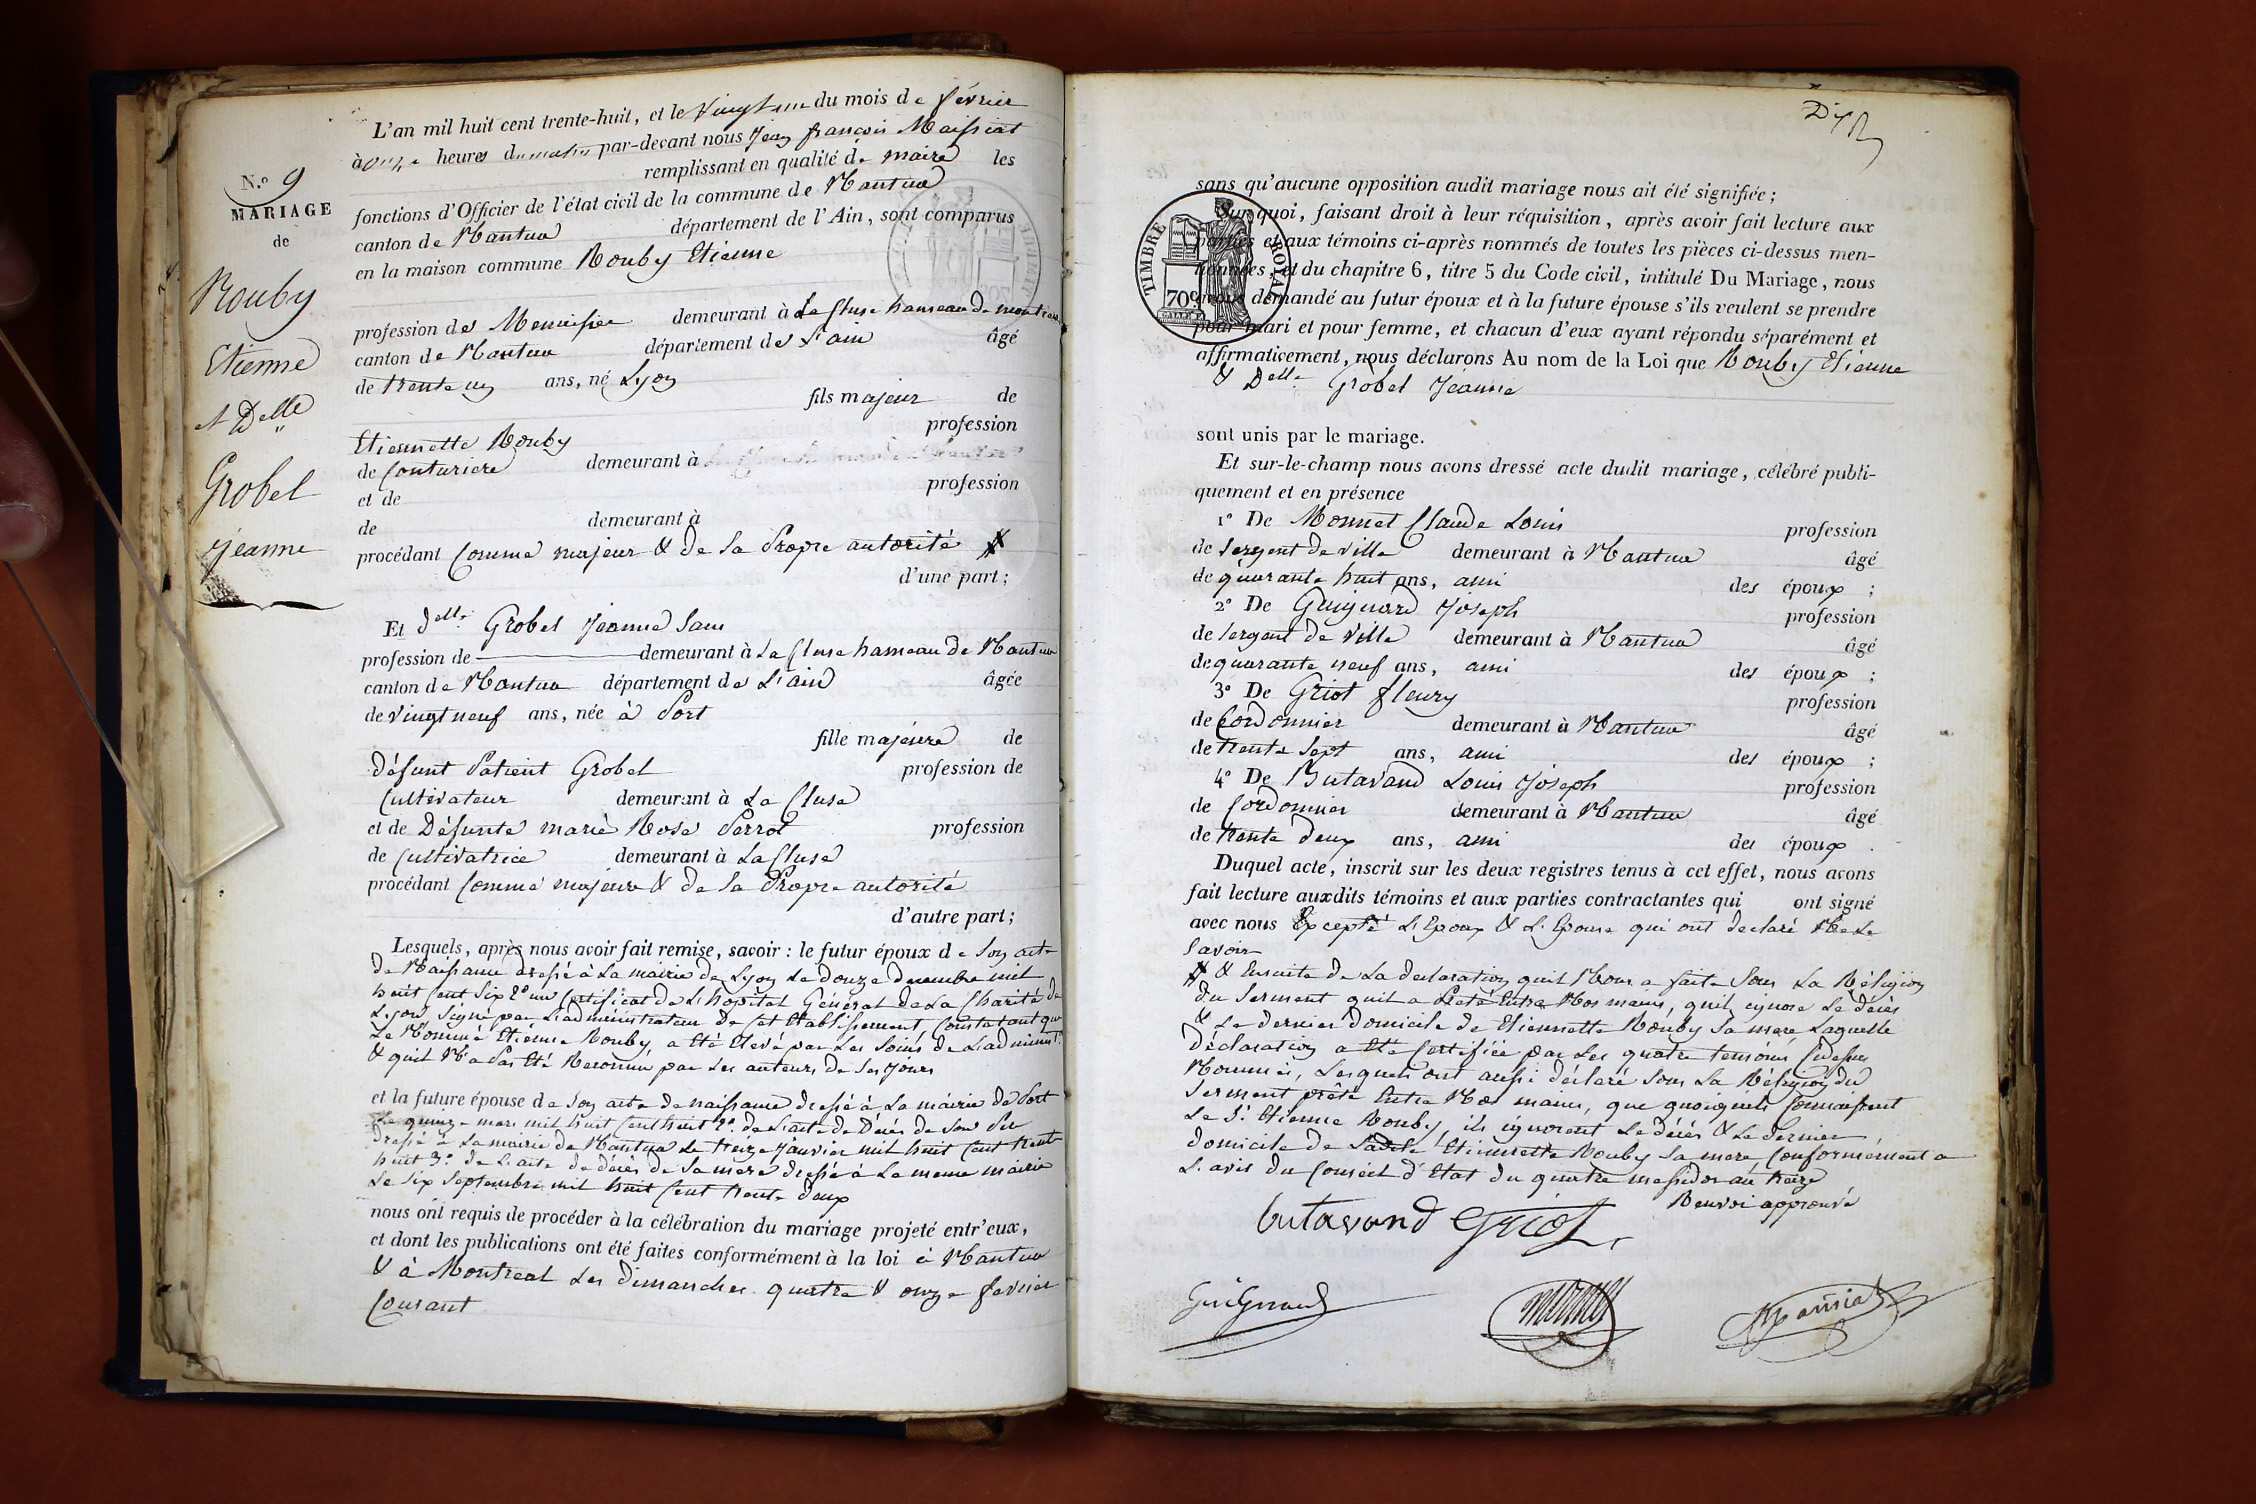 L'an mil huit cent trente-huit, et le vingt un du mois de février
à onze heures du matin par-devant nous Jean françois Maissiat
remplissant en qualité de maire les
fonctions d'Officier de l'état civil de la commune de Nantua
canton de Nantua département de l'Ain, sont comparus
en la maison commune Rouby Etienne
profession de Menuisier demeurant à La Cluse hameau de montréal
canton de Nantua département de L'ain âgé
de trente un ans, né Lyon
fils majeur de
Etiennette Rouby profession
de Couturiere demeurant à
et de profession
de demeurant à
procédant Comme majeur & de Sa Propre autorité #
d'une part;
N.º 9
MARIAGE
de
Rouby
Etienne
& Delle
Grobel
Jeanne
Et delle Grobel Jeanne Sans
profession de demeurant à La Cluse hameau de Nantua
canton de Nantua département de L'ain âgée
de vingt neuf ans, née à Port
fille majeure de
défunt Patient Grobel profession de
Cultivateur demeurant à La Cluse
et de Défunte marie Rose Perrot profession
de Cultivatrice demeurant à La Cluse
procédant Comme majeure & de Sa Propre autorité
d'autre part;
Lesquels, après nous avoir fait remise, savoir : le futur époux de Son acte
de Naissance dressé à La mairie de Lyon Le douze decembre mil
huit Cent Six 2º un Certificat de L'hopital Général de La Charité de
Lyon Signé par L'administrateur de Cet Etablissement Constatant que
Le Nommé Etienne Rouby a Eté Elevé par Les Soins de L'administ.
& quil N'a Pas Eté Reconnu par Les auteurs de Ses Jours
et la future épouse de Son acte de naissance dressé à La mairie de Port
Le quinze mars mil huit Cent huit 2º de L'acte de Décès de Son Père
dressé à La mairie de Nantua Le treize Janvier mil huit Cent trente
huit 3º de L'acte de décès de Sa mère dressé à La meme mairie
Le Six Septembre mil huit Cent trente deux
nous ont requis de procéder à la célébration du mariage projeté entr'eux,
et dont les publications ont été faites conformément à la loi à Nantua
& à Montreal Les dimanches quatre & onze fevrier
Courant
Dix
sans qu'aucune opposition audit mariage nous ait été signifiée;
Sur quoi, faisant droit à leur réquisition, après avoir fait lecture aux
parties et aux témoins ci-après nommés de toutes les pièces ci-dessus men-
tionnées, et du chapitre 6, titre 5 du Code civil, intitulé Du Mariage, nous
avons demandé au futur époux et à la future épouse s'ils veulent se prendre
pour mari et pour femme, et chacun d'eux ayant répondu séparément et
affirmativement, nous déclarons Au nom de la Loi que Rouby Etienne
& Delle Grobel Jeanne
TIMBRE ROYAL
70c
sont unis par le mariage.
Et sur-le-champ nous avons dressé acte dudit mariage, célébré publi-
quement et en présence
1º De Monnet Claude Louis profession
de Sergent de ville demeurant à Nantua âgé
de quarante huit ans, ami des époux ;
2º De Guignard Joseph profession
de Sergent de Ville demeurant à Nantua âgé
de quarante neuf ans, ami des époux ;
3º De Griot fleury profession
de Cordonnier demeurant à Nantua âgé
de trente Sept ans, ami des époux ;
4º De Butavand Louis Joseph profession
de Cordonnier demeurant à Nantua âgé
de trente deux ans, ami des époux .
Duquel acte, inscrit sur les deux registres tenus à cet effet, nous avons
fait lecture auxdits témoins et aux parties contractantes qui ont signé
avec nous Excepté L'Epoux & L'Epouse qui ont declaré Ne Le
Savoir
# & Ensuite de La declaration quil Nous a faite Sous La Réligion
du Serment quil a Preté Entre Nos mains, quil ignore Le décès
& Le dernier domicile de Etiennette Rouby Sa mere Laquelle
déclaration a Eté Certifiée par Les quatre temoins Cidessus
Nommés, Lesquels ont aussi déclaré Sous La Réligion du
Serment prêté Entre Nos mains, que quoiquils Connaissent
Le Sr Etienne Rouby, ils ignorent Le décès & Le dernier
domicile de Ladite Etiennette Rouby Sa mere Conformement a
L'avis du Conseil d'Etat du quatre messidor an treize
Renvoi approuvé
butavand Griot
Guignard Monnet Maissiat